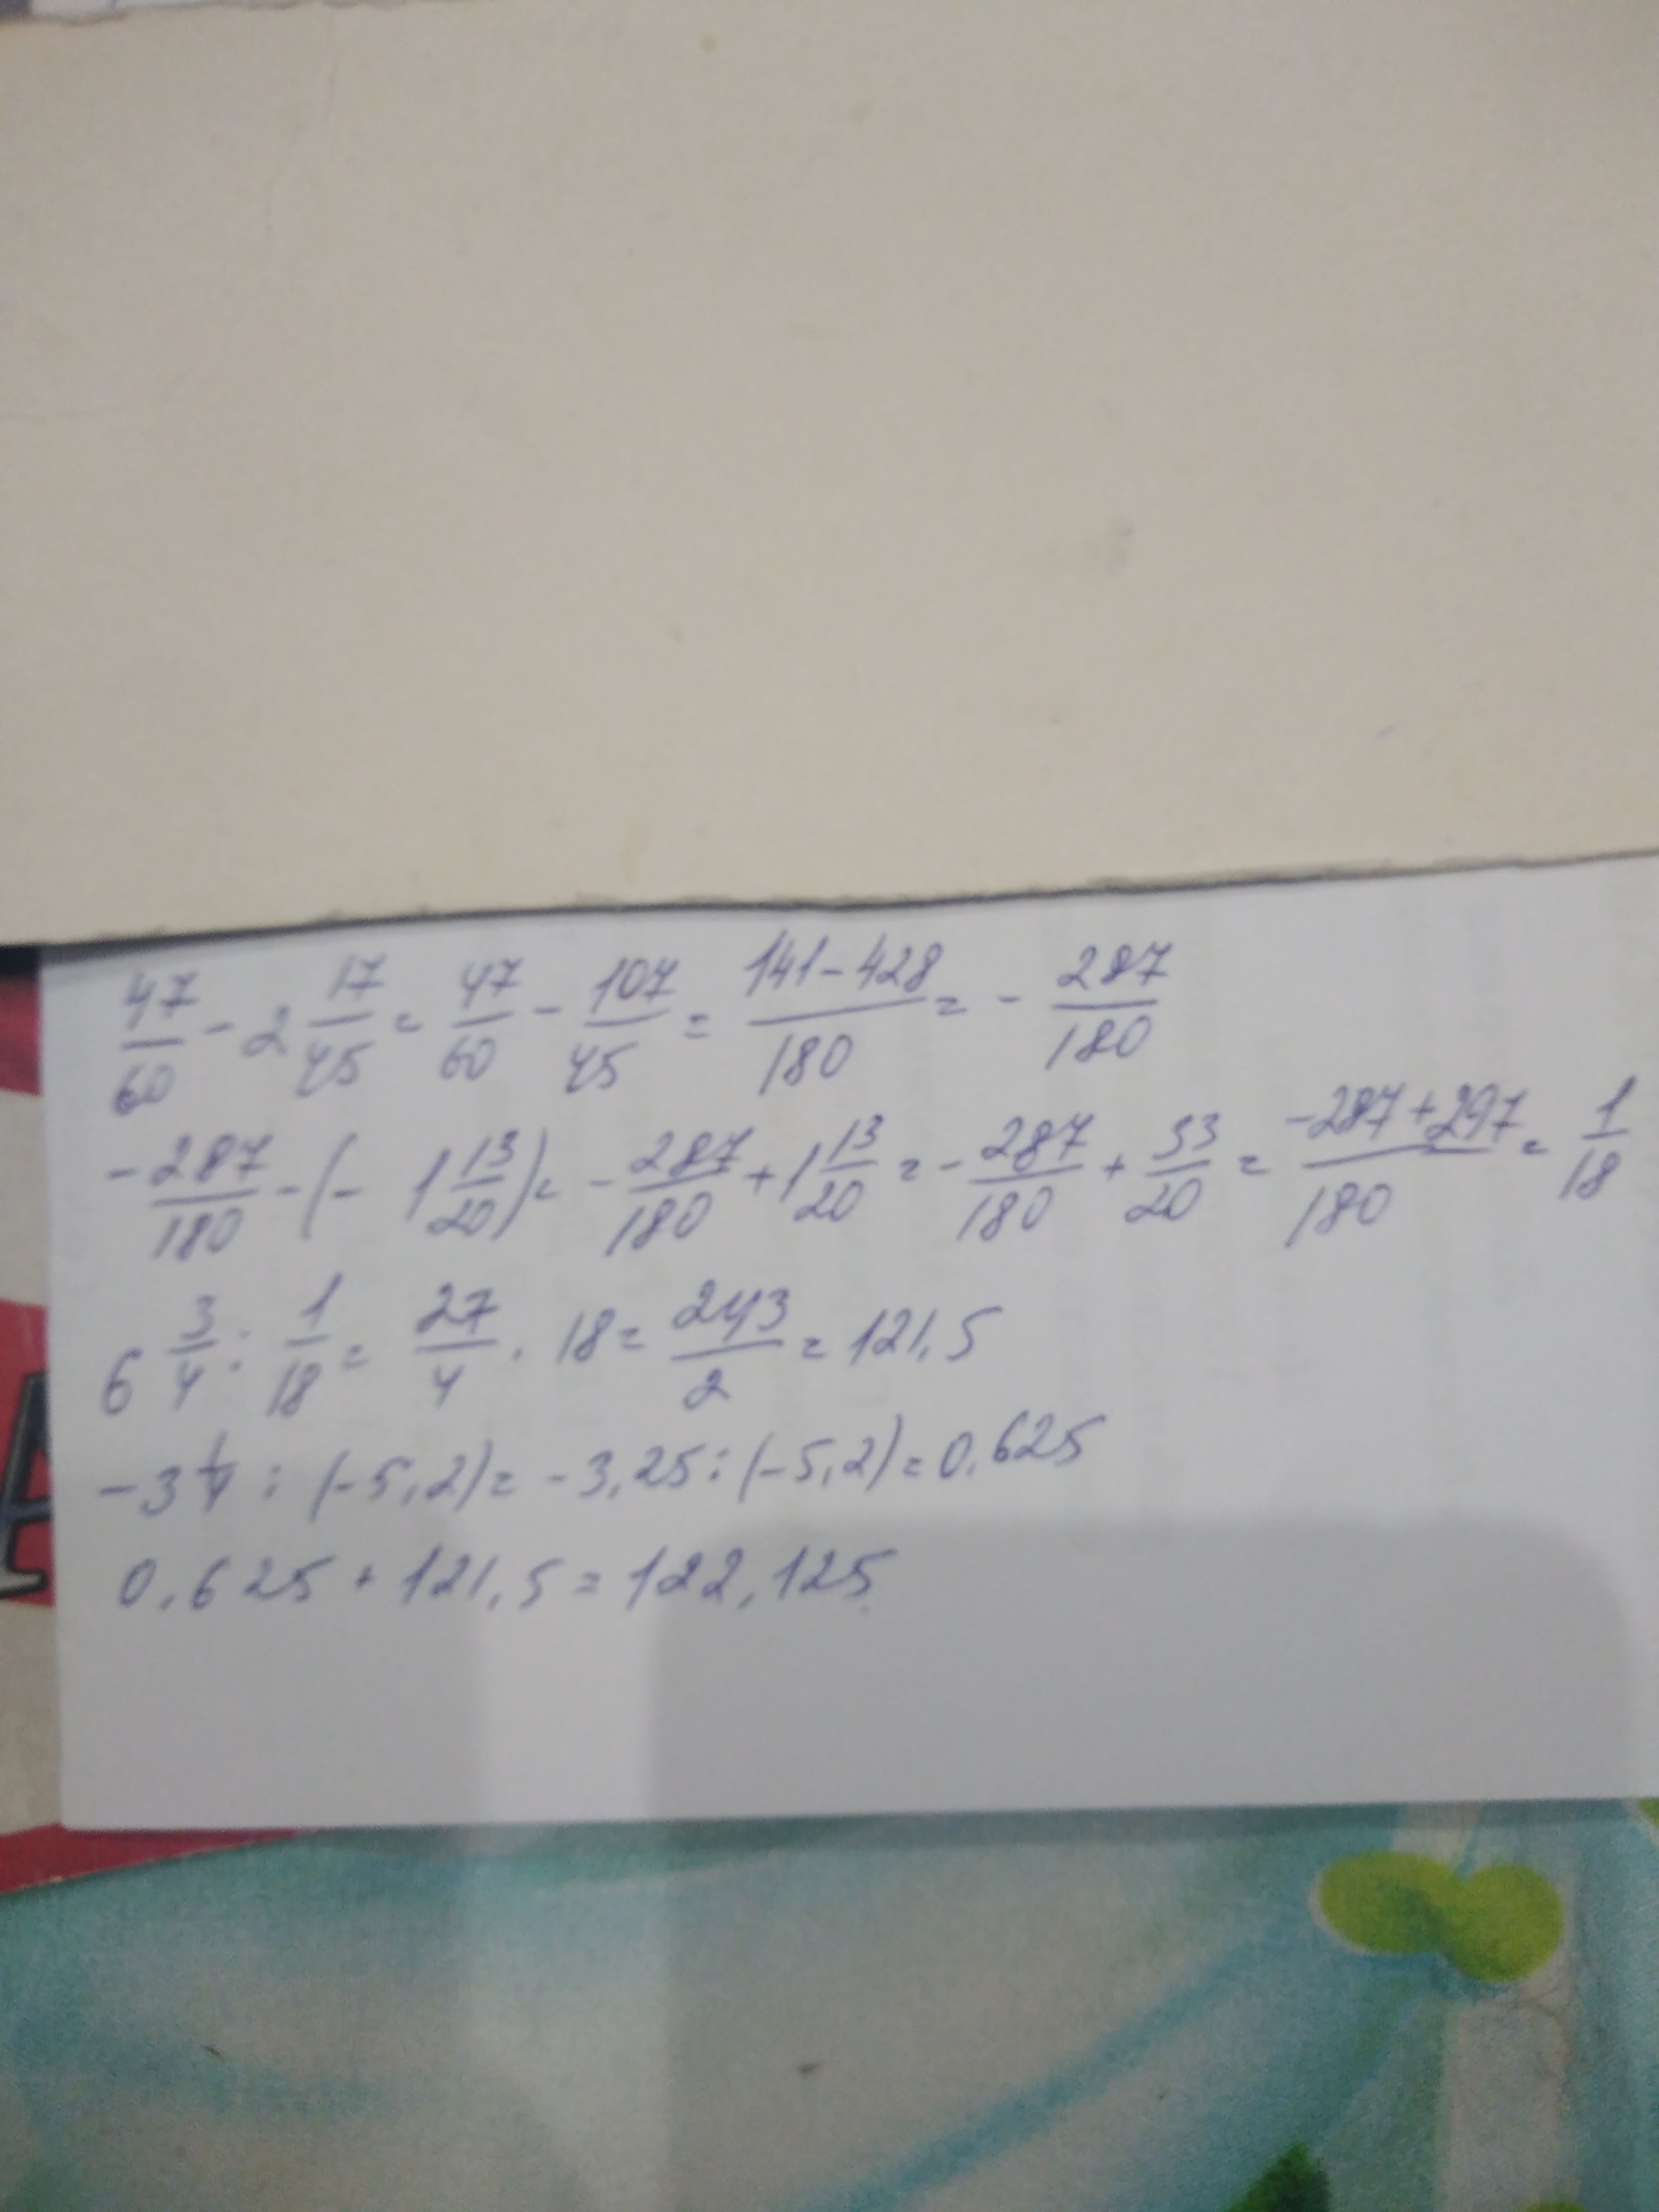 47/60 - 2 17/45 = 47/60 - 107/45 = (141-428)/180 = - 287/180
- 287/180 - (- 1 13/20) = - 287/180 + 1 13/20 = - 287/180 + 33/20 = (-287+297)/180 = 1/18
6 3/4 : 1/18 = 27/4 · 18 = 243/2 = 121,5
-3 1/4 : (-5,2) = -3,25 : (-5,2) = 0,625
0,625 + 121,5 = 122,125